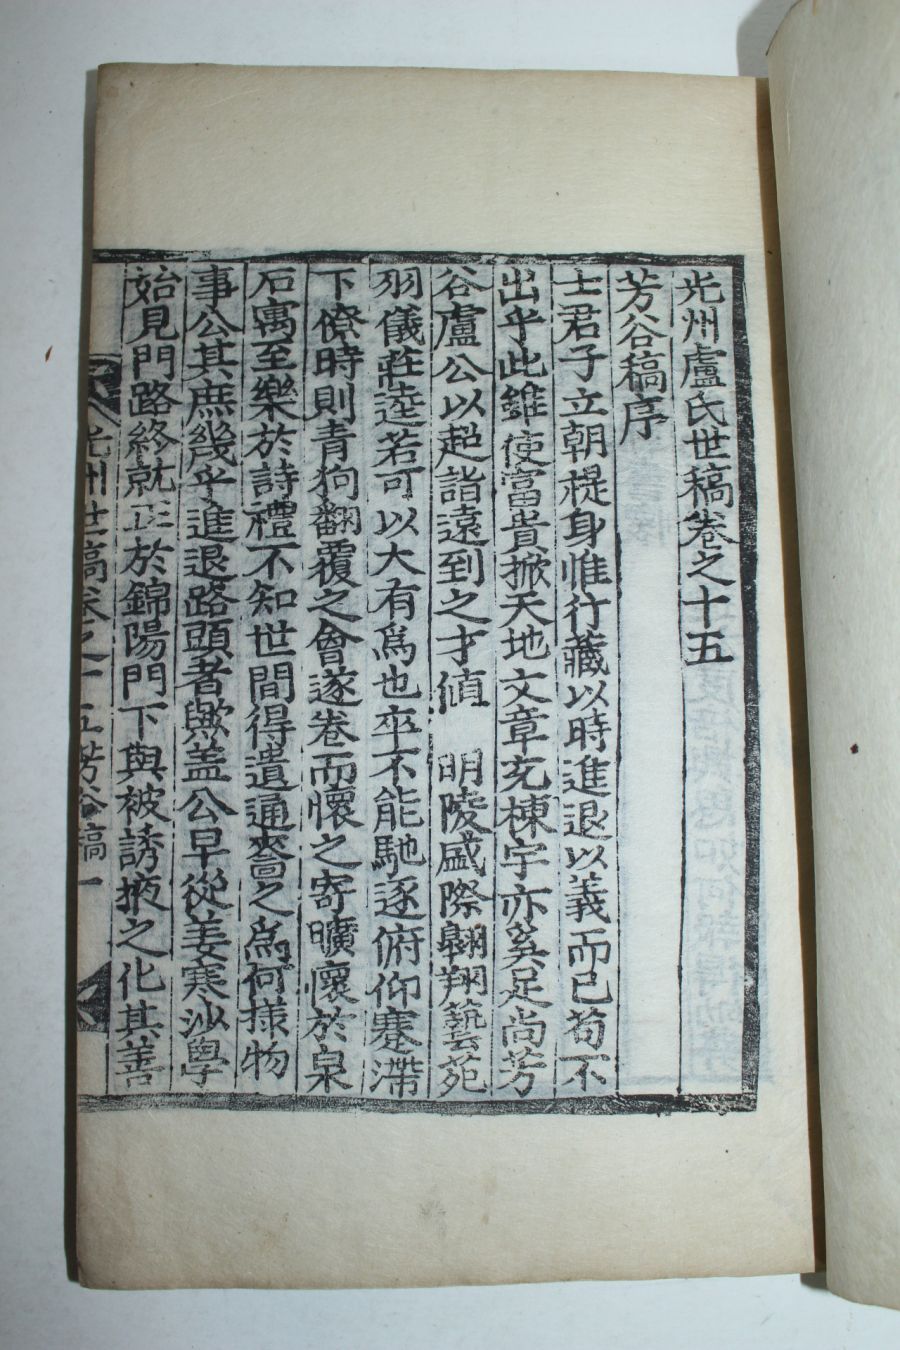 光州盧氏世稿卷之十五
芳谷稿序
士君子立朝禔身惟行藏以時進退以義而已苟不
出乎此雖使富貴掀天地文章充棟宇亦奚足尚芳
谷盧公以超詣遠到之才値 明陵盛際翶翔藝苑
羽儀莊逵若可以大有爲也卒不能馳逐俯仰蹇滯
下僚時則靑狗翻覆之會遂卷而懷之寄曠懷於泉
石寓至樂於詩禮不知世間得遺通嗇之爲何樣物
事公其庶幾乎進退路頭者歟盖公早從姜寒沙學
始見門路終就正於錦陽門下與被誘掖之化其善
光州世稿卷之十五芳谷稿 一